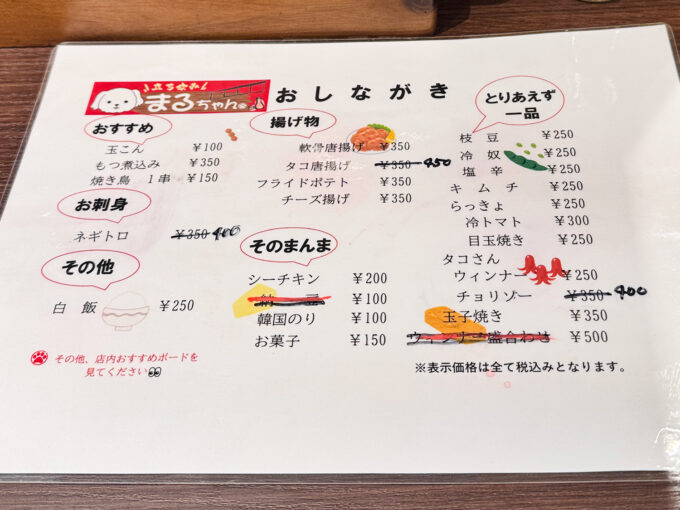 立ち呑み
まるちゃん。
おしながき
おすすめ
玉こん ¥100
もつ煮込み ¥350
焼き鳥 1串 ¥150
お刺身
ネギトロ ¥350 400
その他
白飯 ¥250
その他、店内おすすめボードを
見てください
揚げ物
軟骨唐揚げ ¥350
タコ唐揚げ ¥350 450
フライドポテト ¥350
チーズ揚げ ¥350
そのまんま
シーチキン ¥200
納豆 ¥100
韓国のり ¥100
お菓子 ¥150
とりあえず
一品
枝豆 ¥250
冷奴 ¥250
塩辛 ¥250
キムチ ¥250
らっきょ ¥250
冷トマト ¥300
目玉焼き ¥250
タコさん
ウィンナー ¥250
チョリソー ¥350 400
玉子焼き ¥350
ウィンナー盛合わせ ¥500
※表示価格は全て税込みとなります。